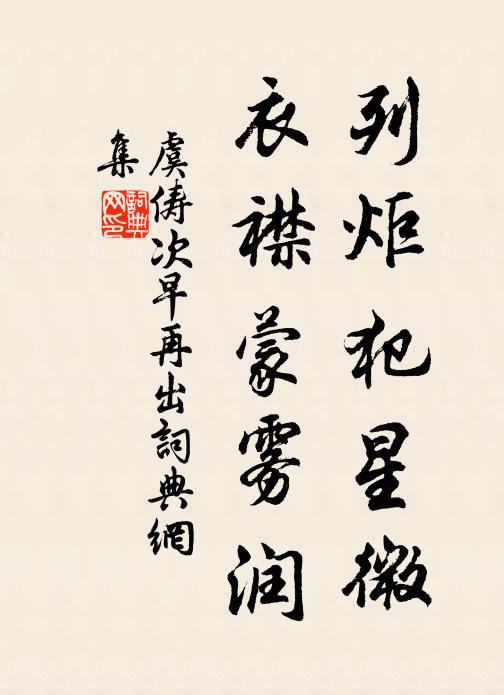 列炬犯星微
衣襟蒙雾润
虞俦次早再出詞典網
集
詞典網印